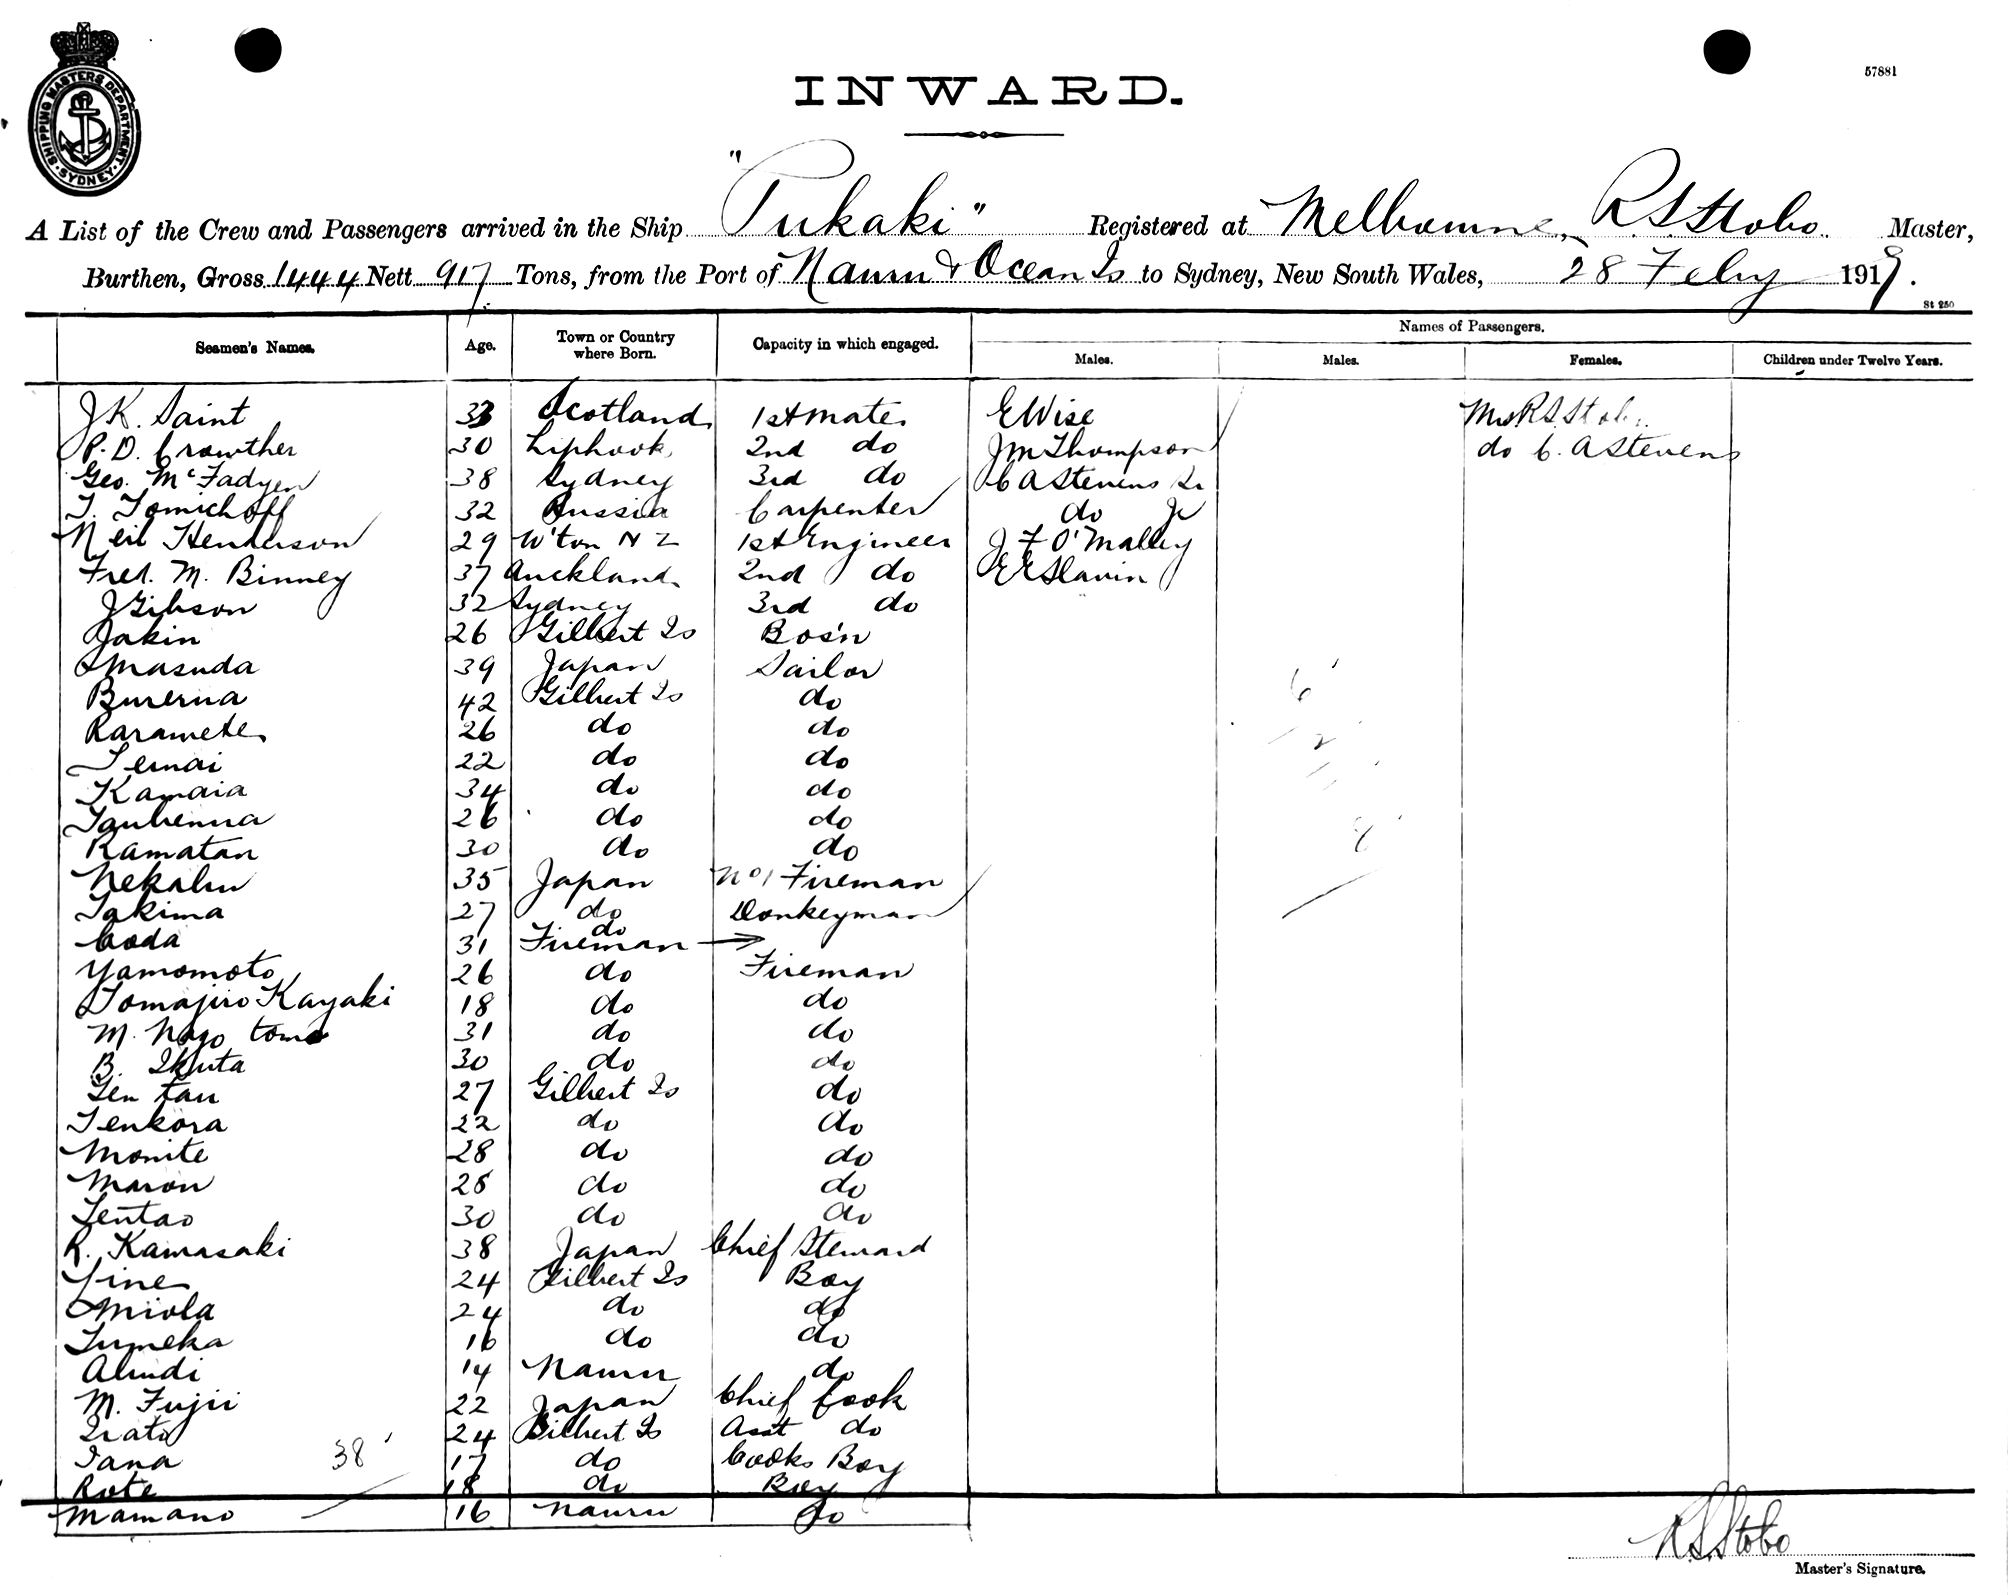 SHIPPING MASTERS DEPARTMENT · SYDNEY ·
57881
INWARD.
A List of the Crew and Passengers arrived in the Ship "Pukaki" Registered at Melbourne, R S Stobo. Master,
Burthen, Gross 1444 Nett 917 Tons, from the Port of Nauru & Ocean Is to Sydney, New South Wales, 28 Feby 1919.
St 250
Seamen's Names. Age. Town or Country where Born. Capacity in which engaged. Names of Passengers.
Males. Males. Females. Children under Twelve Years.
J K. Saint 33 Scotland 1st Mate E Wise Mrs R S Stobo
P. D. Crowther 30 Liphook 2nd do J M Thompson do C. A Stevens
Geo. McFadyen 38 Sydney 3rd do C A Stevens Sr
T. Tomichoff 32 Russia Carpenter do Jr
Neil Henderson 29 W'ton N Z 1st Engineer J F O'Malley
Fred. M. Binney 37 Auckland 2nd do E E Slavin
J Gibson 32 Sydney 3rd do
Jakin 26 Gilbert Is Bos'n
Masuda 39 Japan Sailor
Burerua 42 Gilbert Is do
Raramete 26 do do
Temai 22 do do
Kamaia 34 do do
26 do do
Ramatan 30 do do
35 Japan No 1 Fireman
Takima 27 do Donkeyman
Coda 31 do Fireman
Yamomoto 26 do Fireman
Tomajiro Kayaki 18 do do
M. Nago tomo 31 do do
B. Ikuta 30 do do
Ten tau 27 Gilbert Is do
Tenkora 22 do do
Monite 28 do do
Maron 28 do do
Tentao 30 do do
R. Kamasaki 38 Japan Chief Steward
Tine 24 Gilbert Is Boy
Miola 24 do do
Tumeka 16 do do
Aludi 14 Nauru do
M. Fujii 22 Japan Chief Cook
Irato 24 Gilbert Is Asst do
Tana 17 do Cooks Boy
38
Rote 18 do Boy
Mamano 16 Nauru do
6
2
8
R S Stobo
Master's Signature.